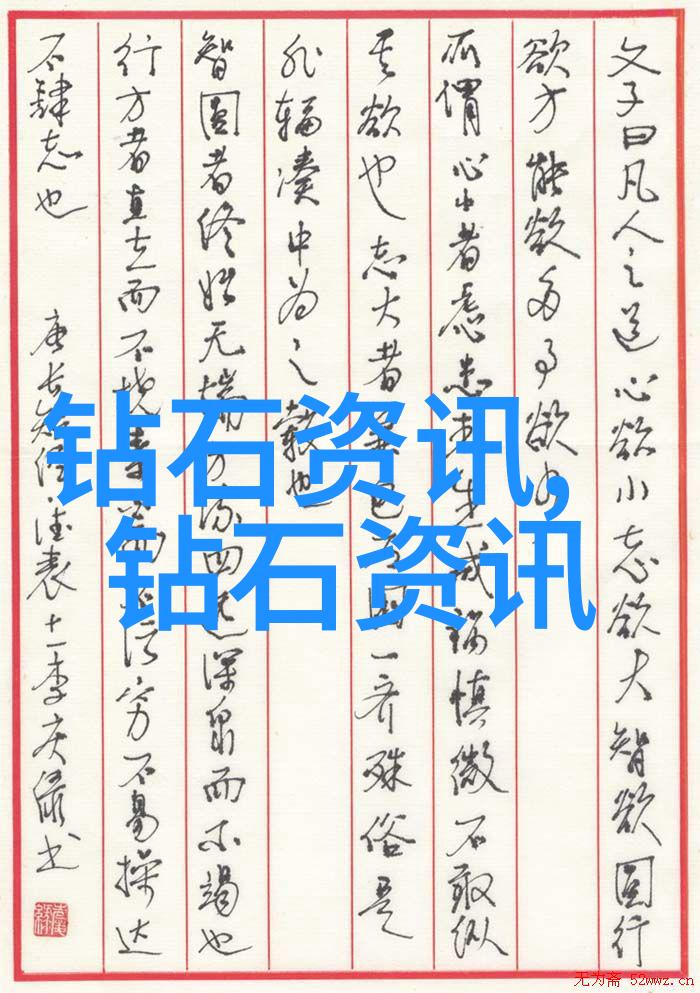 文子曰凡人之道心欲小志欲大智欲圆行
欲方能欲多事欲少
所谓心小者虑患未生戒祸慎微不敢纵
其欲也志大者兼包万国一齐殊俗是
非辐凑中为之毂也
智圆者终始无端方流四远深泉而不竭也
行方者直立而不挠素污穷不易操达
不肆志也
唐长短经·德表十一李庆绿书
钻石资讯,
钻石资讯
无为斋 52wwz.cn